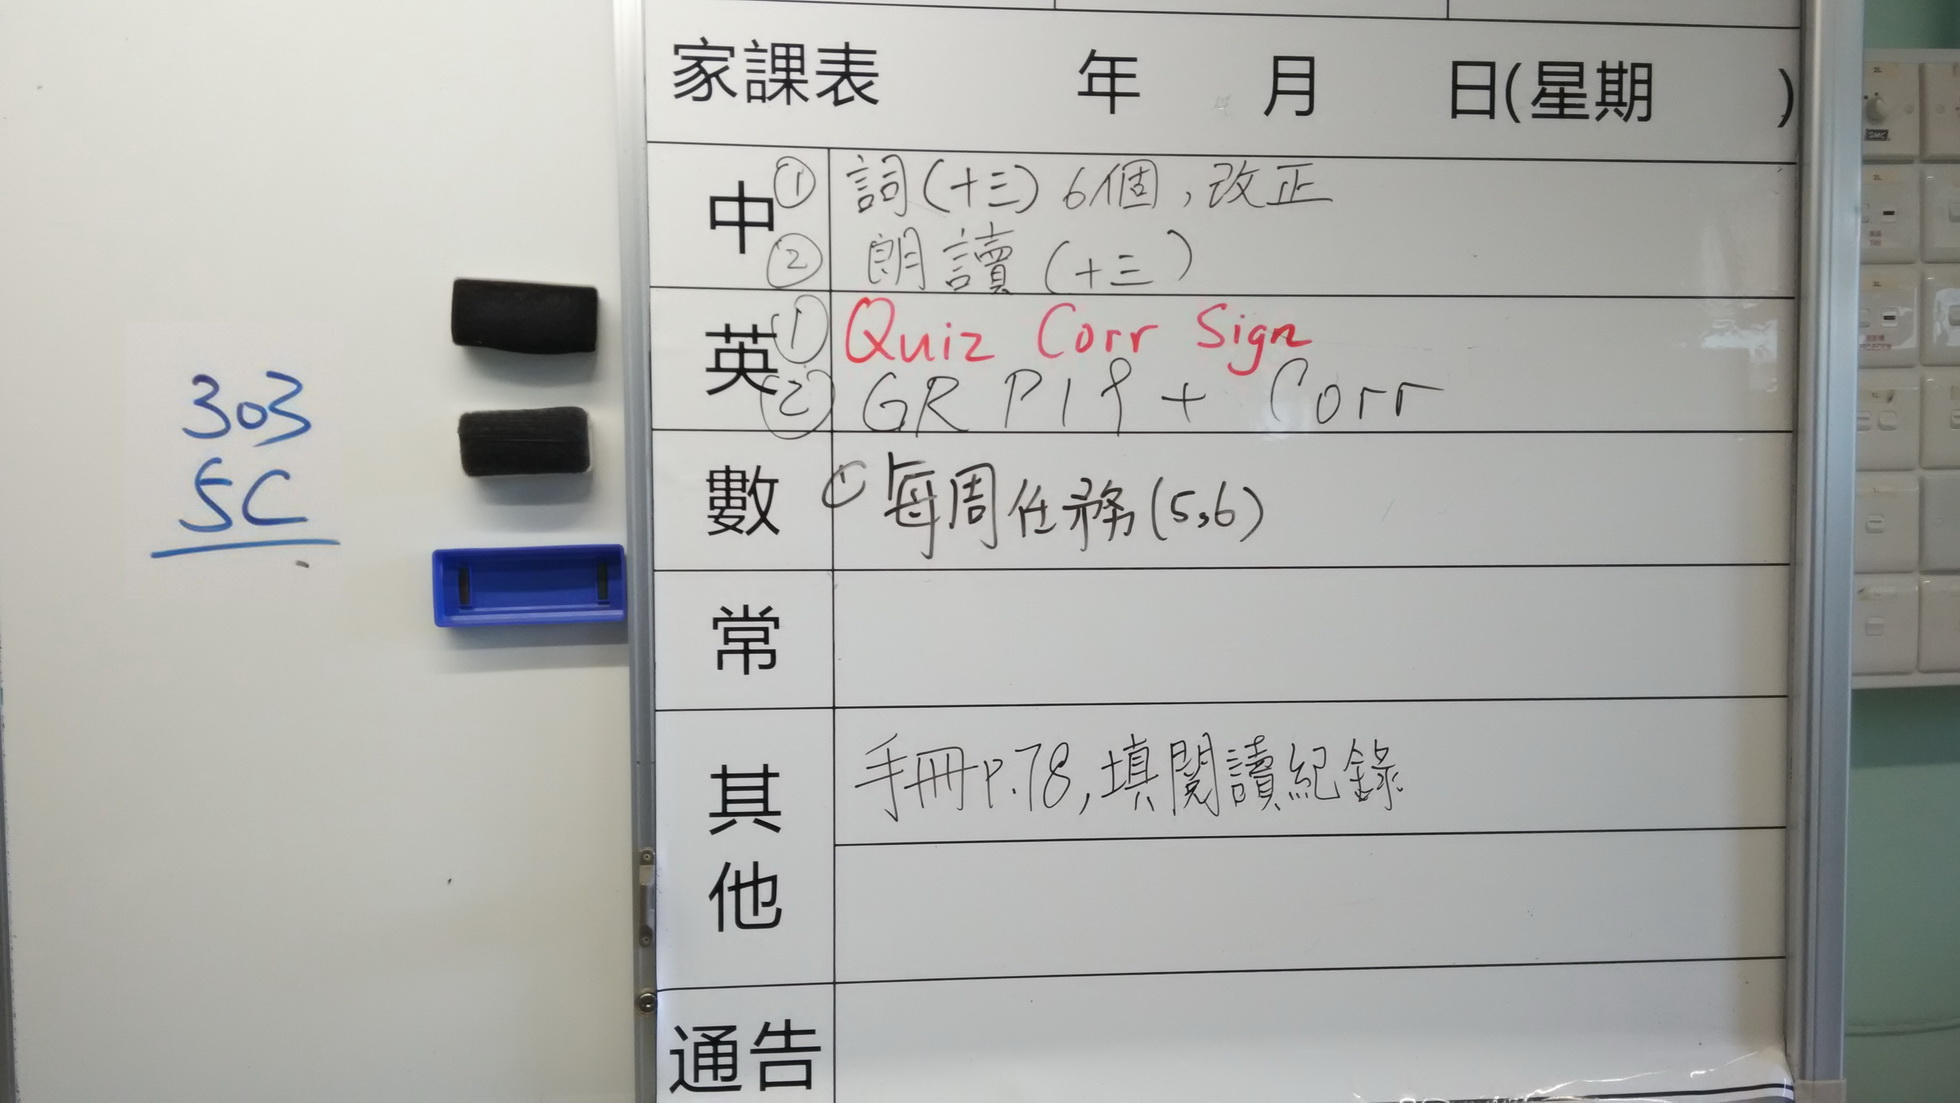 303
5C
家課表 年 月 日(星期 )
中 ① 詞(十三)6個,改正
② 朗讀(十三)
英 ① Quiz Corr Sign
② GR P19 + Corr
數 ① 每周任務(5,6)
常
其他 手冊P.78,填閱讀紀錄
通告